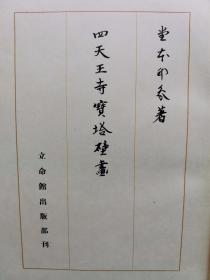 堂本印象著
四天王寺寳塔壁畫
立命館出版部刊